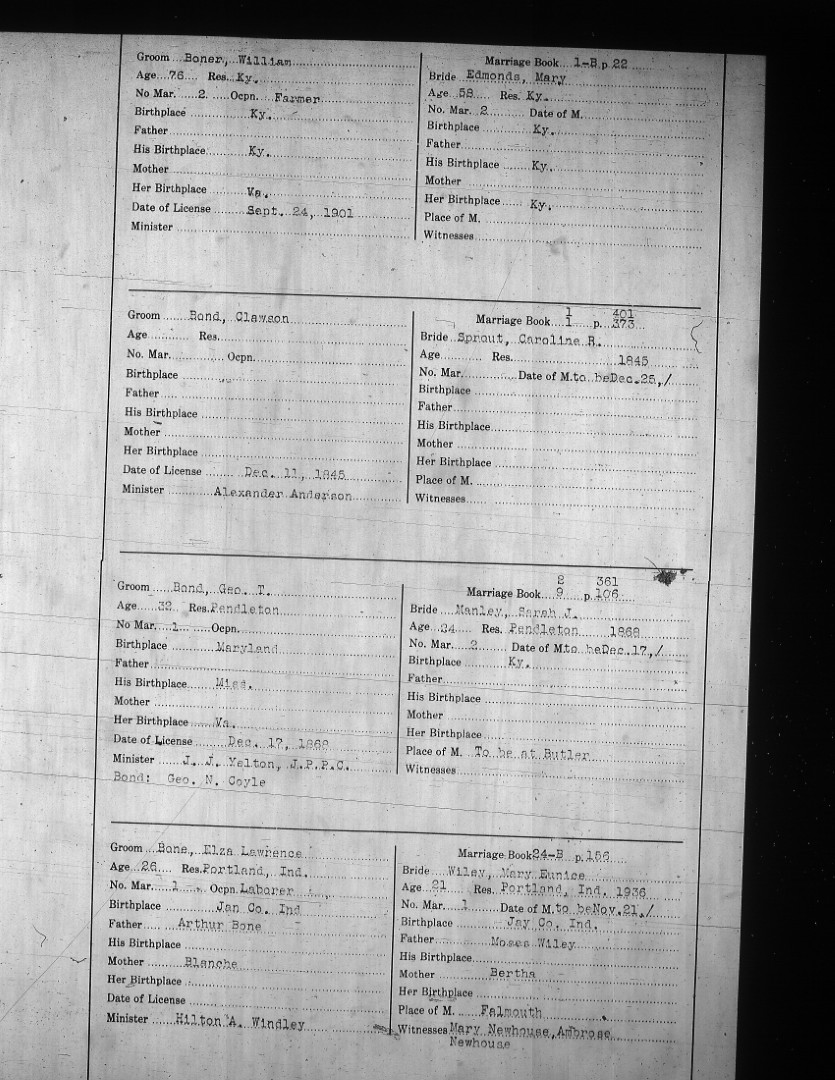 Groom Boner, William
Age 76 Res. Ky.
No Mar. 2. Ocpn. Farmer
Birthplace Ky.
Father
His Birthplace Ky.
Mother
Her Birthplace Va.
Date of License Sept. 24, 1901
Minister
Marriage Book 1-B p. 22
Bride Edmonds, Mary
Age 58 Res. Ky.
No. Mar. 2 Date of M.
Birthplace Ky.
Father
His Birthplace Ky.
Mother
Her Birthplace Ky.
Place of M.
Witnesses
Groom Bond, Clawson
Age Res.
No. Mar. Ocpn.
Birthplace
Father
His Birthplace
Mother
Her Birthplace
Date of License Dec. 11, 1845
Minister Alexander Anderson
1 401
Marriage Book 1 p. 373
Bride Sprout, Caroline R.
Age Res. 1845
No. Mar. Date of M. to be Dec. 25, /
Birthplace
Father
His Birthplace
Mother
Her Birthplace
Place of M.
Witnesses
Groom Bond, Geo. T.
Age 32 Res. Pendleton
No Mar. 1 Ocpn.
Birthplace Maryland
Father
His Birthplace Miss.
Mother
Her Birthplace Va.
Date of License Dec. 17, 1868
Minister J. J. Yelton, J.P.P.C.
Bond: Geo. N. Coyle
2 361
Marriage Book 9 p. 106
Bride Manley, Sarah J.
Age 24 Res. Pendleton 1868
No. Mar. 2 Date of M. to be Dec. 17, /
Birthplace Ky.
Father
His Birthplace
Mother
Her Birthplace
Place of M. To be at Butler
Witnesses
Groom Bone, Elza Lawrence
Age 26 Res. Portland, Ind.
No. Mar. 1 Ocpn. Laborer
Birthplace Jan Co. Ind
Father Arthur Bone
His Birthplace
Mother Blanche
Her Birthplace
Date of License
Minister Hilton A. Windley
Marriage Book 24-B p. 166
Bride Wiley, Mary Eunice
Age 21 Res. Portland, Ind. 1936
No. Mar. 1 Date of M. to be Nov. 21, /
Birthplace Jay Co. Ind.
Father Moses Wiley
His Birthplace
Mother Bertha
Her Birthplace
Place of M. Falmouth
Witnesses Mary Newhouse, Ambrose
Newhouse